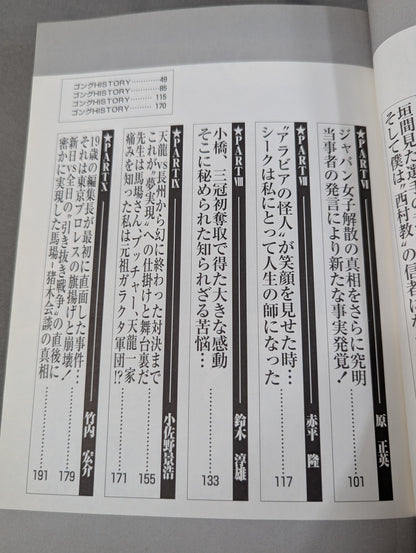 垣間見た選
そして僕は“西村教”の信者に
★PART Ⅵ
原 正英
ジャパン女子解散の真相をさらに究明
当事者の発言により新たな事実発覚!
101
★PART Ⅶ
赤平 隆
“アラビアの怪人”が笑顔を見せた時…
シークは私にとって人生の師になった
117
★PART Ⅷ
鈴木 淳雄
小橋、三冠初奪取で得た大きな感動
そこに秘められた知られざる苦悩…
133
★PART Ⅸ
小佐野景浩
天龍vs長州から幻に終わった対決まで
これが“夢実現”への仕掛けと舞台裏だ
155
先生は馬場さん、ブッチャー、天龍一家
痛みを知った私は元祖ガラクタ軍団!?
171
★PART Ⅹ
竹内 宏介
19歳の編集長が最初に直面した事件…
それは東京プロレスの旗揚げと崩壊!
179
新日vs全日の“引き抜き戦争”の直後に
密かに実現した馬場-猪木会談の真相
191
ゴングHISTORY 49
ゴングHISTORY 86
ゴングHISTORY 116
ゴングHISTORY 170